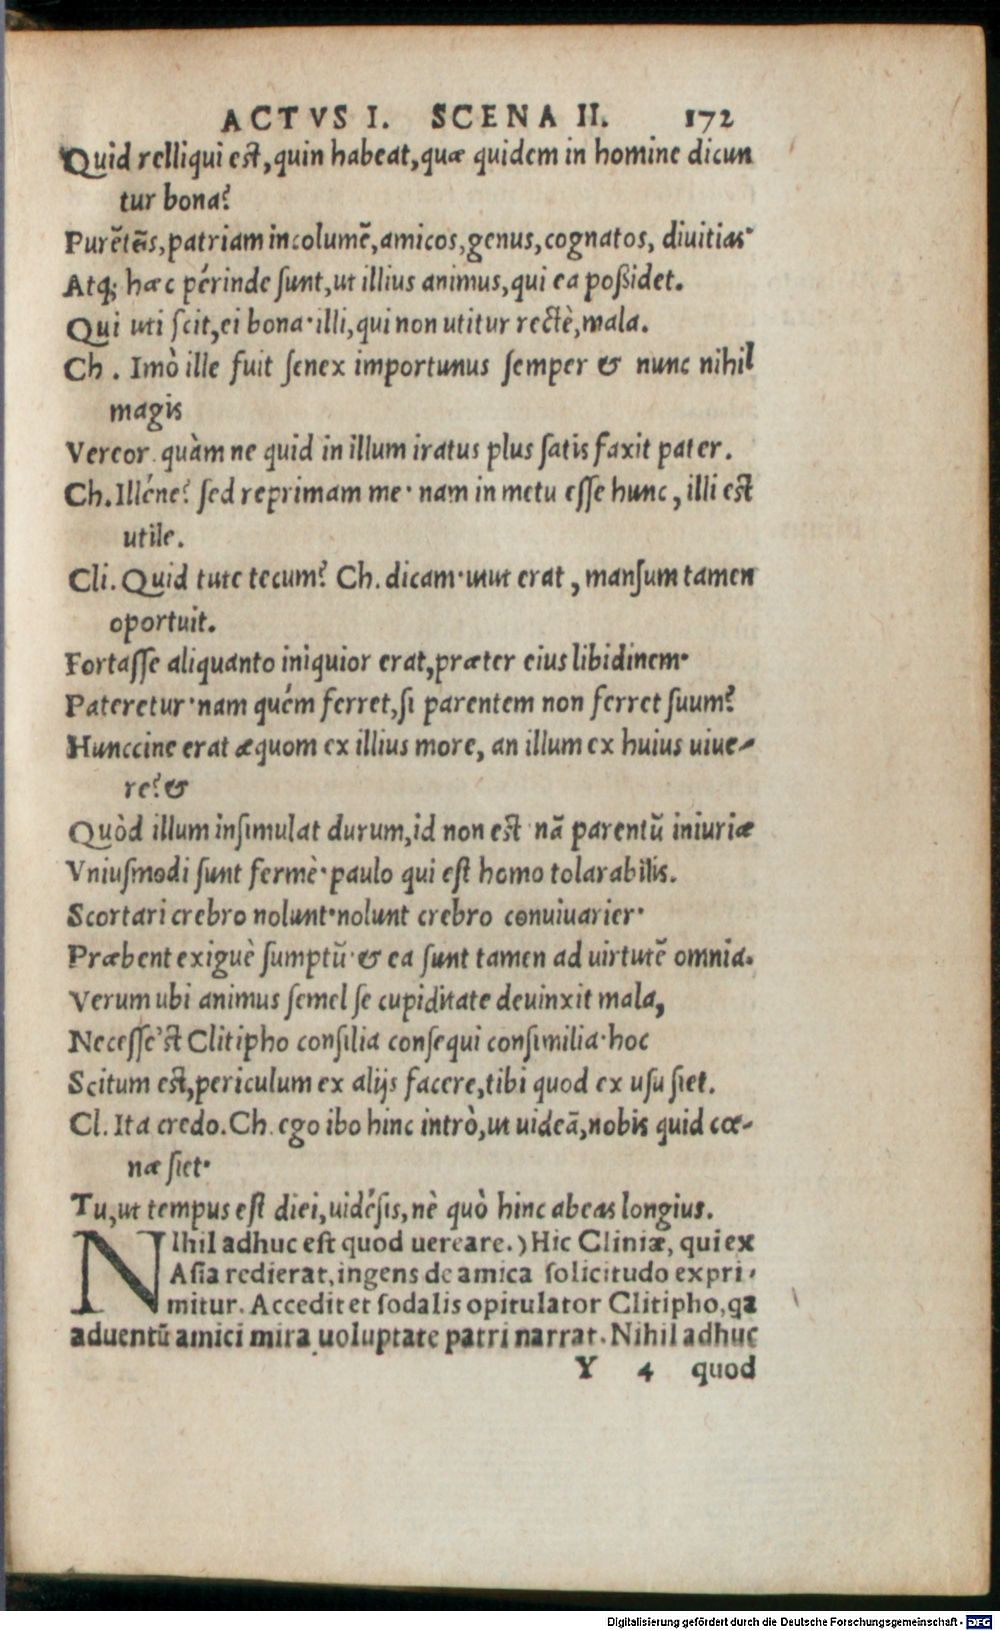 ACTVS I. SCENA II. 172
Quid relliqui est, quin habeat, quæ quidem in homine dicun
tur bona?
Purẽtẽs, patriam incolumẽ, amicos, genus, cognatos, diuitias·
Atq; hæc périnde sunt, ut illius animus, qui ea poßidet.
Qui uti scit, ei bona· illi, qui non utitur rectè, mala.
Ch. Imò ille fuit senex importunus semper & nunc nihil
magis
Vereor quàm ne quid in illum iratus plus satis faxit pater.
Ch. Illéne? sed reprimam me· nam in metu esse hunc, illi est
utile.
Cli. Quid tute tecum? Ch. dicam· utut erat, mansum tamen
oportuit.
Fortasse aliquanto iniquior erat, præter eius libidinem·
Pateretur· nam quém ferret, si parentem non ferret suum?
Hunccine erat æquom ex illius more, an illum ex huius uiue-
re? &
Quòd illum insimulat durum, id non est· nã parentũ iniuriæ
Vniusmodi sunt fermè· paulo qui est homo tolarabilis.
Scortari crebro nolunt· nolunt crebro conuiuarier·
Præbent exiguè sumptũ· & ea sunt tamen ad uirtutẽ omnia.
Verum ubi animus semel se cupiditate deuinxit mala,
Necesse'st Clitipho consilia consequi consimilia· hoc
Scitum est, periculum ex alijs facere, tibi quod ex usu siet.
Cl. Ita credo. Ch. ego ibo hinc intrò, ut uideã, nobis quid cœ-
næ siet·
Tu, ut tempus est diei, uidésis, nè quò hinc abeas longius.
NIhil adhuc est quod uereare.) Hic Cliniæ, qui ex
Asia redierat, ingens de amica solicitudo expri-
mitur. Accedit et sodalis opitulator Clitipho, qa
aduentũ amici mira uoluptate patri narrat. Nihil adhuc
Y 4 quod
Digitalisierung gefördert durch die Deutsche Forschungsgemeinschaft - DFG